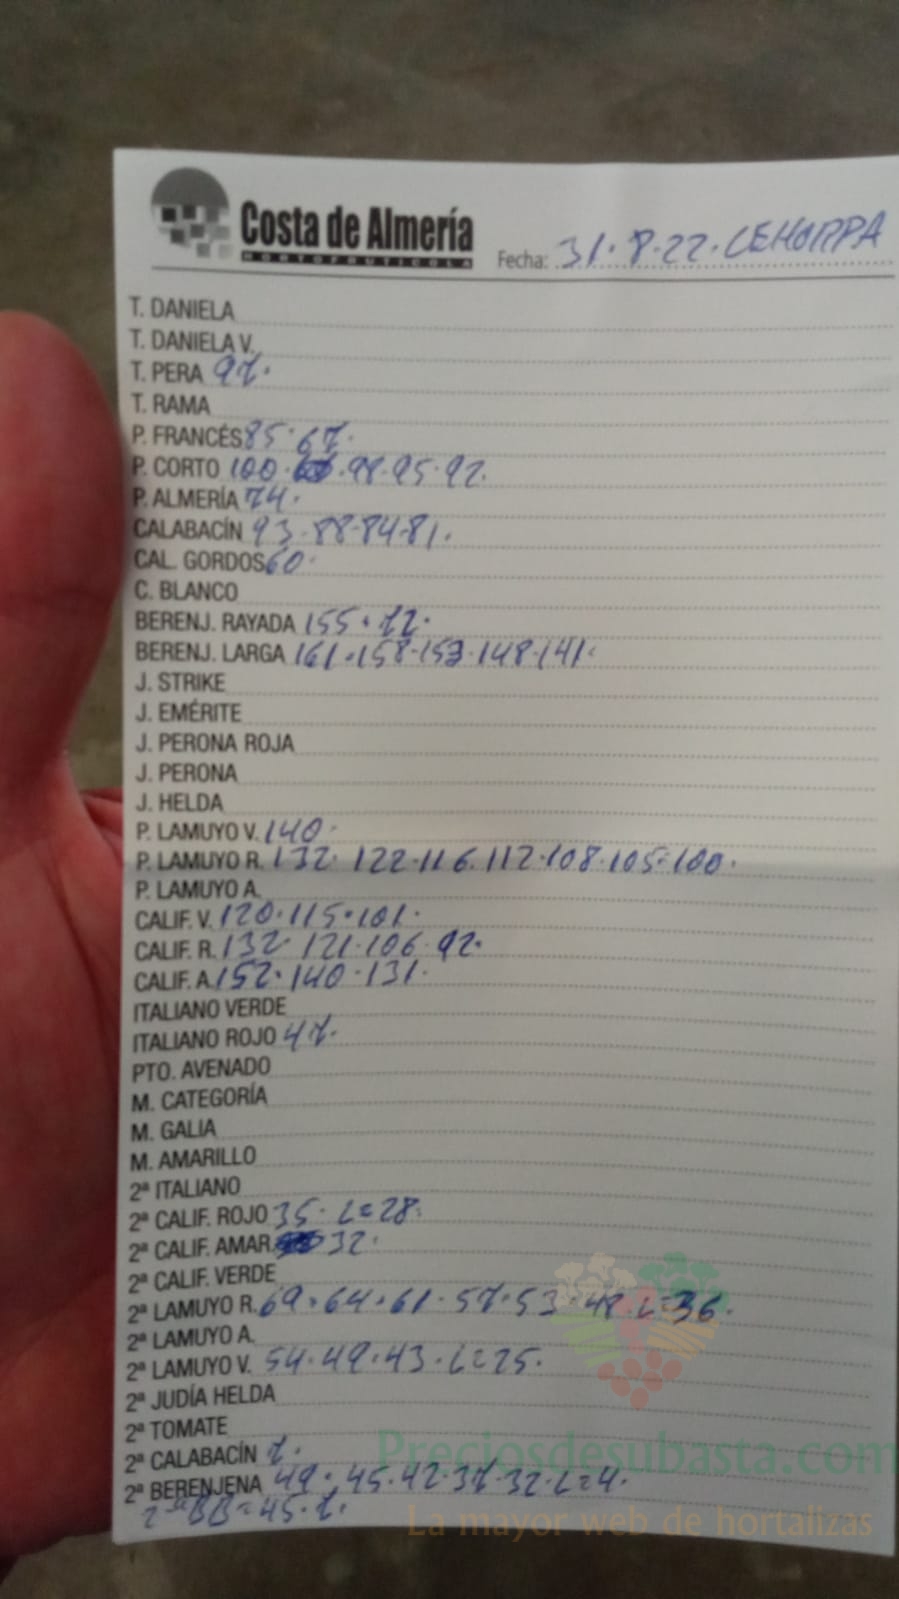 Costa de Almería
HORTOFRUTICOLA
Fecha: 31.8.22. CEHORPA
T. DANIELA
T. DANIELA V.
T. PERA 97.
T. RAMA
P. FRANCÉS 85.67.
P. CORTO 100. .98.95.92.
P. ALMERÍA 74.
CALABACÍN 93.88.84.81.
CAL. GORDOS 60.
C. BLANCO
BERENJ. RAYADA 155.72.
BERENJ. LARGA 161.158.153.148.141.
J. STRIKE
J. EMÉRITE
J. PERONA ROJA
J. PERONA
J. HELDA
P. LAMUYO V. 140.
P. LAMUYO R. 132. 122.116.112.108.105.100.
P. LAMUYO A.
CALIF. V. 120.115.101.
CALIF. R. 132. 121.106.92.
CALIF. A. 152.140.131.
ITALIANO VERDE
ITALIANO ROJO 47.
PTO. AVENADO
M. CATEGORÍA
M. GALIA
M. AMARILLO
2ª ITALIANO
2ª CALIF. ROJO 35. L=28.
2ª CALIF. AMAR. 32.
2ª CALIF. VERDE
2ª LAMUYO R. 69.64.61.57.53.48.L=36.
2ª LAMUYO A.
2ª LAMUYO V. 54.49.43.L=25.
2ª JUDÍA HELDA
2ª TOMATE
2ª CALABACÍN 7.
2ª BERENJENA 49.45.42.37.32.L=4.
2ªBB=45.7.
Preciosdesubasta.com
La mayor web de hortalizas